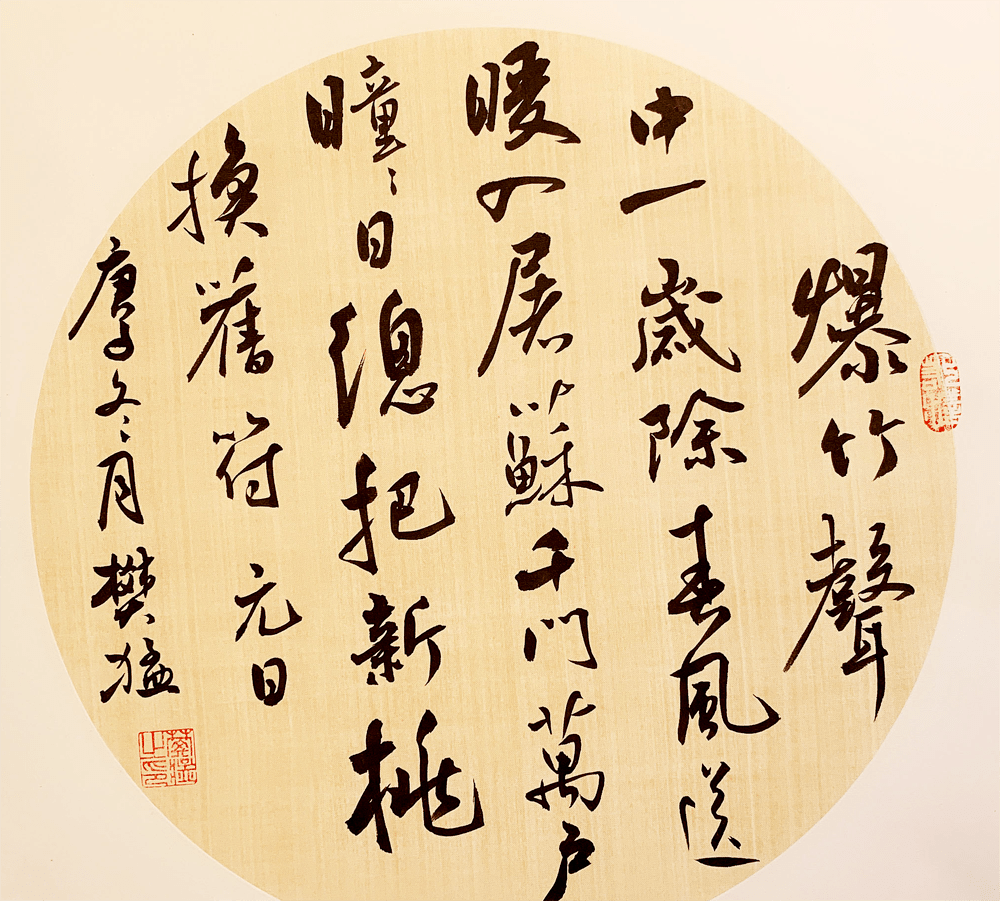 爆竹聲
中一歲除春風送
暖入屠蘇千門萬户
曈々日總把新桃
換舊符 元日
庚子冬月樊猛
樊猛之印